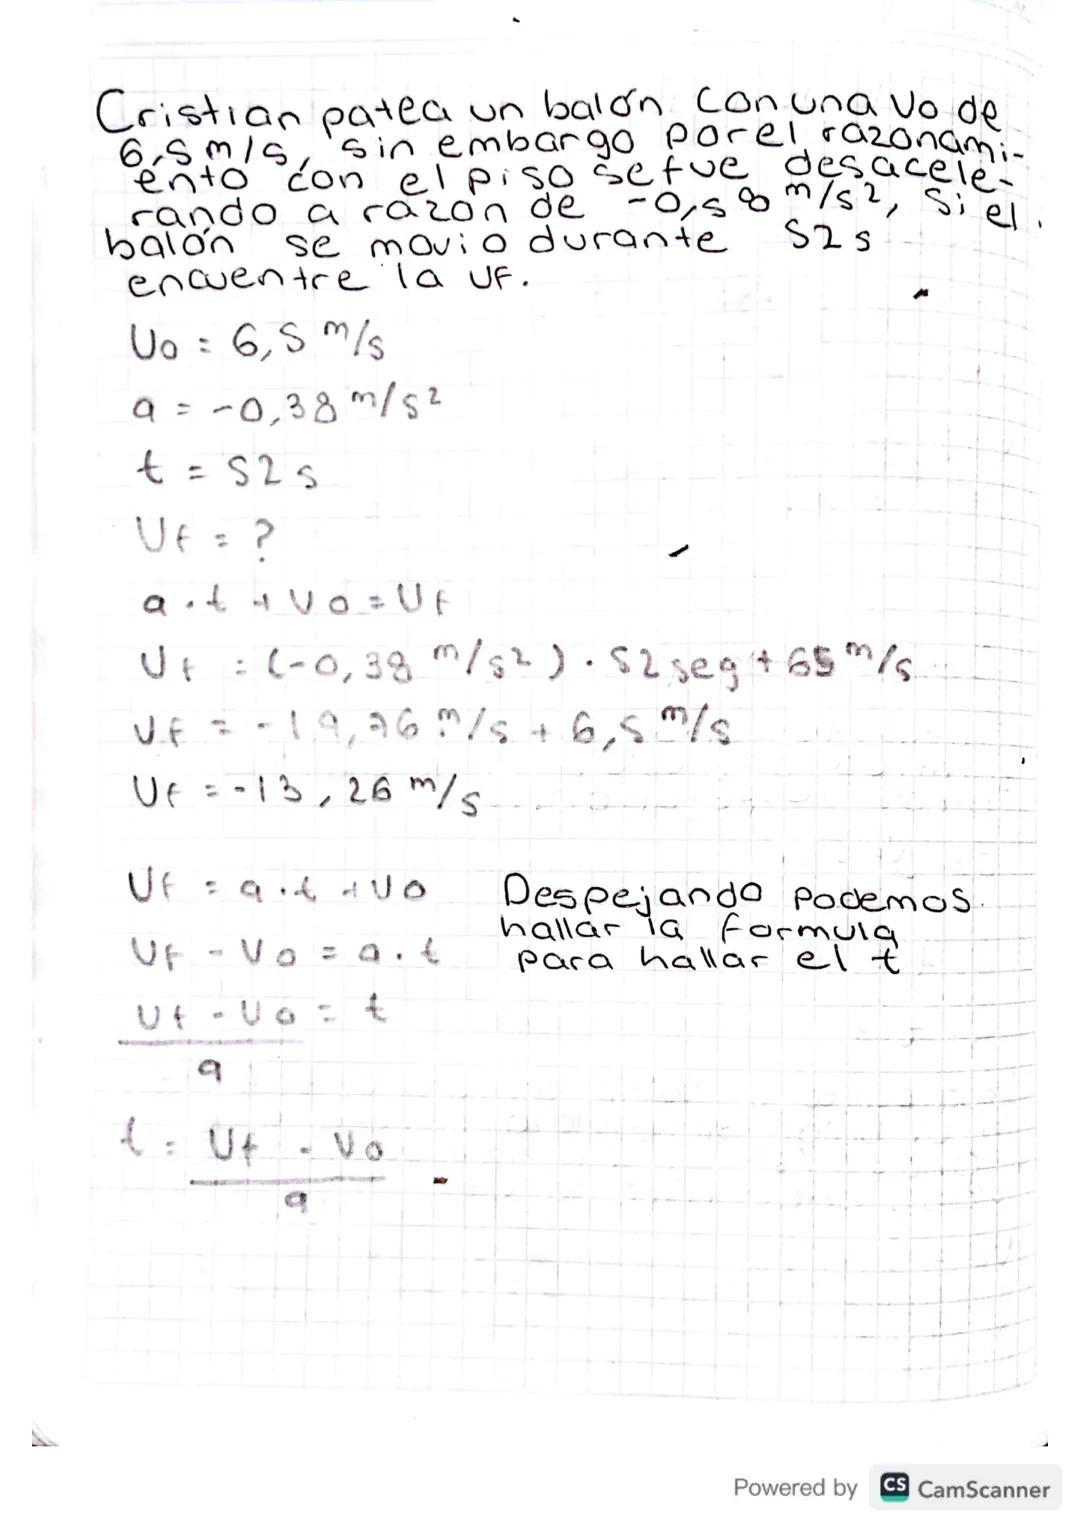 Cristian patea un balón con una Vo de
6,5 m/s, sin embargo por el razonami-
ento con el piso se fue desacele-
rando a razon de -0,58 m/s², si el
balón se movio durante 52s
encuentre la Uf.
Uo = 6,5 m/s
a = -0,38 m/s²
t = 52s
Uf = ?
a . t + Vo = Uf
Uf = (-0,38 m/s²) . 52seg + 65 m/s
Uf = -19,76 m/s + 6,5 m/s
Uf = -13,26 m/s
Uf = a . t + Uo
Despejando podemos
hallar la formula
para hallar el t
Uf - Vo = a . t
Uf - Uo = t
a
t = Uf - Vo
a
Powered by CS CamScanner